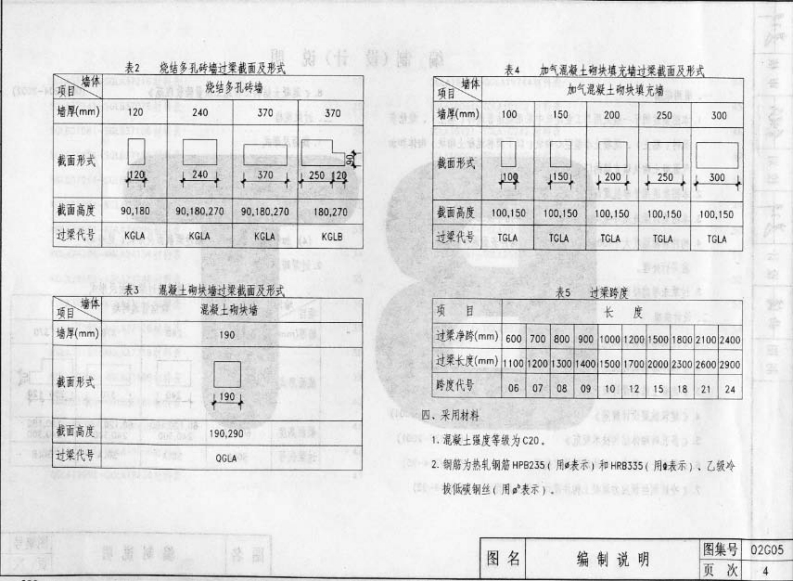 表2 烧结多孔砖墙过梁截面及形式
项目 墙体 烧结多孔砖墙
墙厚(mm) 120 240 370 370
截面形式 120 240 370 250 120 90
截面高度 90,180 90,180,270 90,180,270 180,270
过梁代号 KGLA KGLA KGLA KGLB
表3 混凝土砌块墙过梁截面及形式
项目 墙体 混凝土砌块墙
墙厚(mm) 190
截面形式 190
截面高度 190,290
过梁代号 QGLA
表4 加气混凝土砌块填充墙过梁截面及形式
项目 墙体 加气混凝土砌块填充墙
墙厚(mm) 100 150 200 250 300
截面形式 100 150 200 250 300
截面高度 100,150 100,150 100,150 100,150 100,150
过梁代号 TGLA TGLA TGLA TGLA TGLA
表5 过梁跨度
项 目 长 度
过梁净跨(mm) 600 700 800 900 1000 1200 1500 1800 2100 2400
过梁长度(mm) 1100 1200 1300 1400 1500 1700 2000 2300 2600 2900
跨度代号 06 07 08 09 10 12 15 18 21 24
四、采用材料
1. 混凝土强度等级为C20。
2. 钢筋为热轧钢筋HPB235(用φ表示)和HRB335(用Φ表示)、乙级冷
拔低碳钢丝(用φᵇ表示)。
图 名 编 制 说 明 图集号 02G05
页 次 4